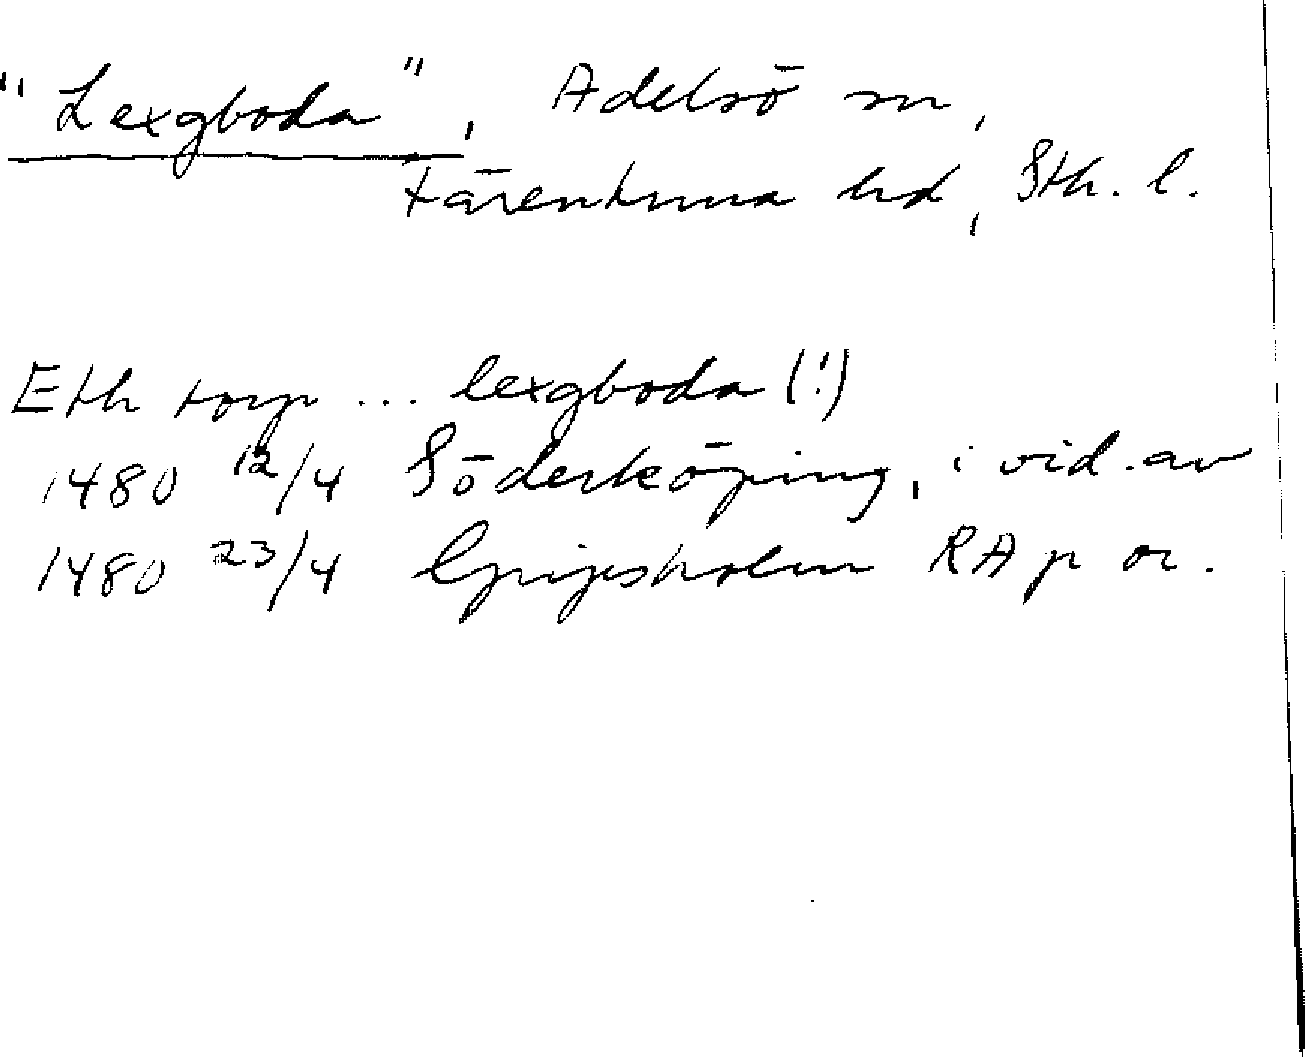 "Lexgboda", Adelsö sn,
Färentuna hd, Sth. l.
Eth torp ... lexgboda (!)
1480 12/4 Söderköping, i vid. av
1480 23/4 Gripsholm RA p or.